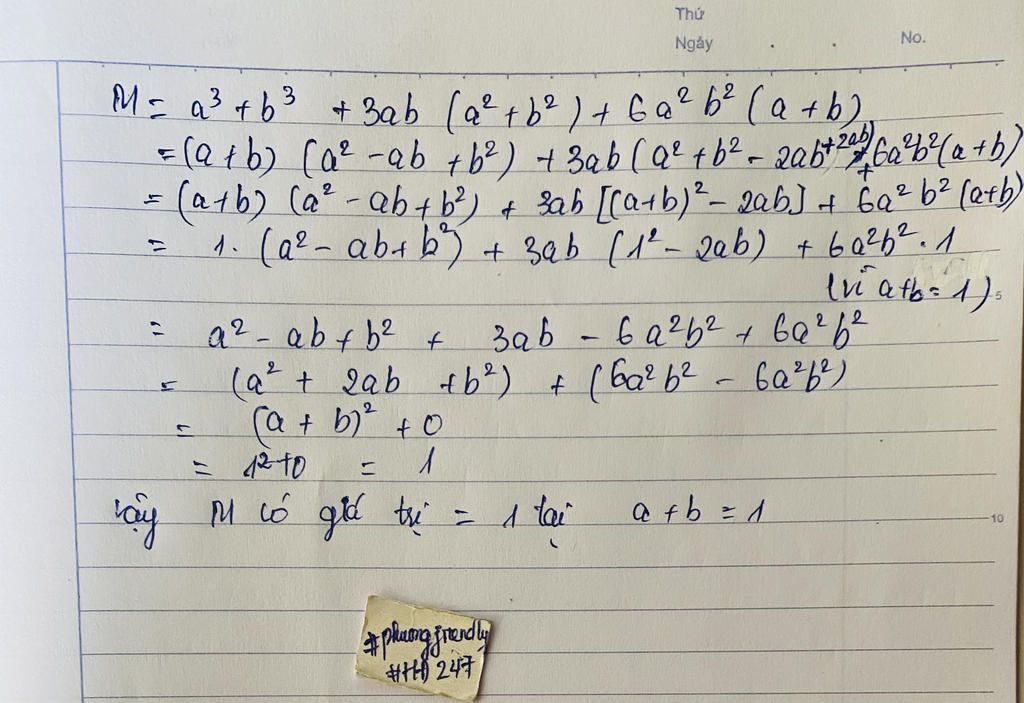 Thứ
Ngày . . No.
M = a³ + b³ + 3ab (a² + b²) + 6a²b² (a + b)
= (a + b) (a² - ab + b²) + 3ab (a² + b² - 2ab + 2ab) + 6a²b² (a + b)
= (a + b) (a² - ab + b²) + 3ab [(a + b)² - 2ab] + 6a²b² (a + b)
= 1. (a² - ab + b²) + 3ab (1² - 2ab) + 6a²b² . 1
(vì a + b = 1) 5
= a² - ab + b² + 3ab - 6a²b² + 6a²b²
= (a² + 2ab + b²) + (6a²b² - 6a²b²)
= (a + b)² + 0
= 1² + 0 = 1
Vậy M có giá trị = 1 tại a + b = 1
10
#phuongfriendly
#HĐ 247